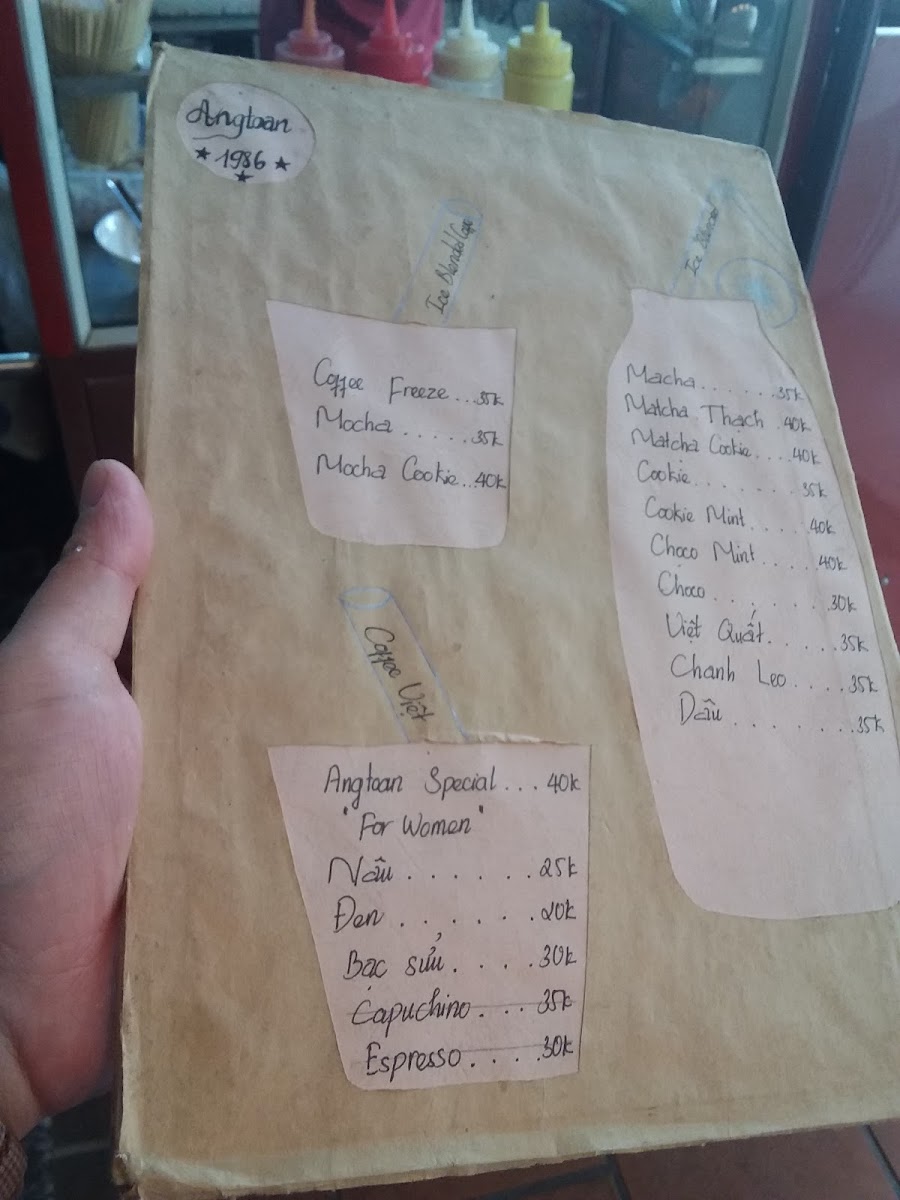 Angtoan
1986
Ice Blended Cafe
Coffee Freeze...35k
Mocha.....35k
Mocha Cookie..40k
Ice Blended
Macha......35k
Matcha Thạch.40k
Matcha Cookie....40k
Cookie.......35k
Cookie Mint....40k
Choco Mint....40k
Choco.......30k
Việt Quất......35k
Chanh Leo....35k
Dâu........35k
Coffee Việt
Angtoan Special...40k
"For Women"
Nâu......25k
Đen......20k
Bạc sửu....30k
Capuchino....35k
Espresso....30k